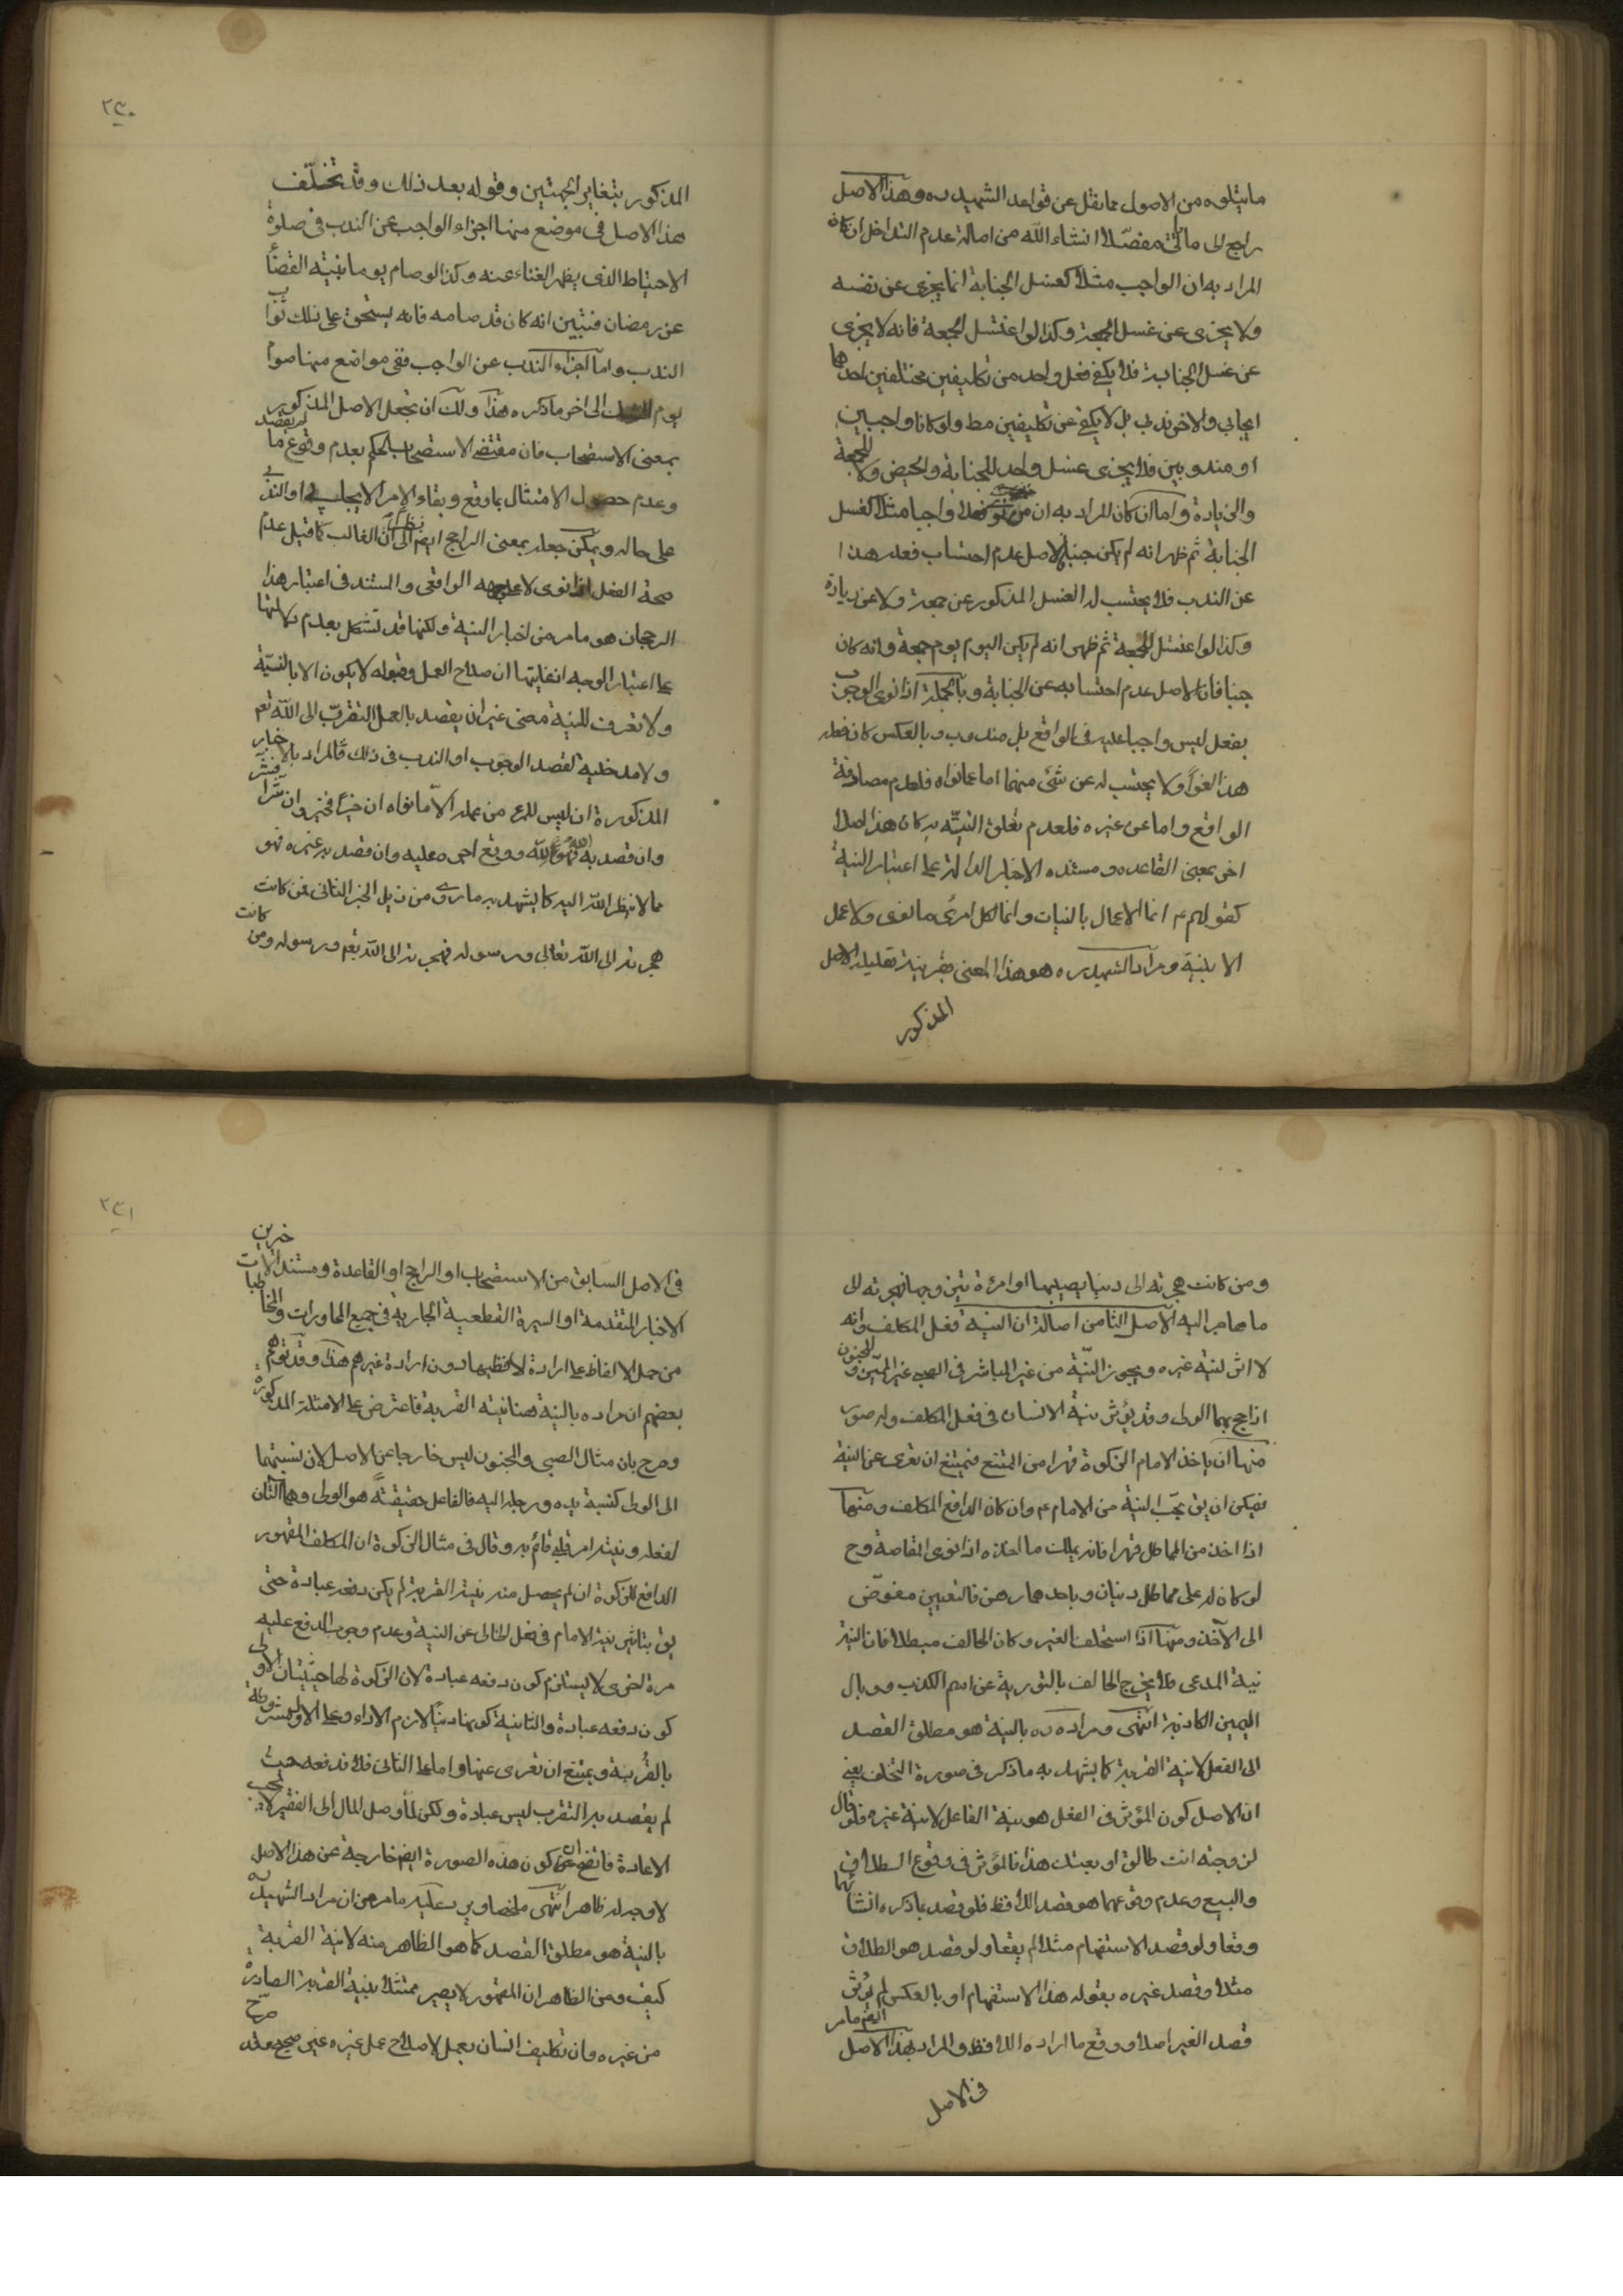 ما يتلوه من الاصول مما نقل عن قواعد الشهيد ره وهذا الاصل
راجع الى ما ياتى مفصّلا انشاء الله من اصالة عدم التداخل ان كان
المراد به ان الواجب مثلا كغسل الجنابة انما يجزى عن نفسه
ولا يجزى عن غسل الجمعة وكذا لو اغتسل للجمعة فانه لا يجزى
عن غسل الجنابة فلا يكفى فعل واحد من تكليفين مختلفين احدهما
ايجابي والاخر ندبي بل لا يكفى عن تكليفين مط ولو كانا واجبين
او مندوبين فلا يجزى غسل واحد للجنابة والحيض ولا للجمعة
والزيادة واما ان كان المراد به ان من نوى فعلا واجبا مثلا كغسل
الجنابة ثم ظهر انه لم يكن جنبا فالاصل عدم احتساب فعله هذا
عن الندب فلا يحتسب له الغسل المذكور عن جمعة ولا عن زيارة
وكذا لو اغتسل للجمعة ثم ظهر انه لم يكن اليوم يوم جمعة وانه كان
جنبا فان الاصل عدم احتسابه عن الجنابة وبالجملة اذا نوى الوجوب
بفعل ليس واجبا عليه فى الواقع بل مندوب وبالعكس كان فعله
هذا لغوا ولا يحتسب له عن شئ منهما اما عما نواه فلعدم مصادفة
الواقع واما عن غيره فلعدم تعلق النيّة به كان هذا اصلا
اخر بمعنى القاعده ومستنده الاخبار الدالة على اعتبار النية
كقولهم ع انما الاعمال بالنيات وانما لكل امرئ ما نوى ولا عمل
الا بنية ومراد الشهيد ره هو هذا المعنى بقرينة تعليله الاصل
المذكور
٢٣٠
المذكور بتغاير الجهتين وقوله بعد ذلك وقد تخلّف
هذا الاصل فى موضع منها اجزاء الواجب عن الندب فى صلوة
الاحتياط الذى يظهر الغناء عنه وكذا لو صام يوما بنية القضاء
عن رمضان فتبين انه كان قد صامه فانه يستحق على ذلك ثواب
الندب واما اجزاء الندب عن الواجب ففى مواضع منها صوم
يوم الشك الى اخر ما ذكره هذا ولك ان تجعل الاصل المذكور
بمعنى الاستصحاب فان مقتضى الاستصحاب الحكم بعدم وقوع ما لم يقصد
وعدم حصول الامتثال بما وقع وبقاء الامر الايجابي او الندبي
على حاله ويمكن جعله بمعنى الراجح ايض نظرا الى ان الغالب كما قيل عدم
صحة الفعل اذا نوى لا على وجهه الواقعى والمستند فى اعتبار هذا
الرجحان هو ما مر من اخبار النية ولكنها قد تشكل بعدم دلالتها
على اعتبار الوجه اذ غايتها ان صلاح العمل وقبوله لا يكون الا بالنيّة
ولا نعرف للنية معنى غير ان يقصد بالعمل التقرّب الى الله تع
ولا مدخلية لقصد الوجوب او الندب فى ذلك فالمراد بالاخبار
المذكورة ان ليس للمرء من عمله الّا ما نواه ان خيرا فخير وان شرا فشر
وان قصد به الله فهو لله ووقع اجره عليه وان قصد به غيره فهو
مما لا ينظر الله اليه كما يشهد به ما روى من ذيل الخبر الثانى فمن كانت
هجرته الى الله تعالى ورسوله فهجرته الى الله تع ورسوله ومن كانت
ومن كانت هجرته الى دنيا يصيبها او امرءة يتزوجها فهجرته الى
ما هاجر اليه الاصل الثامن اصالة ان النية فعل المكلف وانه
لا اثر لنية غيره ويجوز النيّة من غير المباشر فى الصبى غير المميّز والمجنون
اذا حج بهما الولى وقد يؤثر نية الانسان فى فعل المكلف وله صور
منها ان ياخذ الامام الزكوة قهرا من الممتنع فيمتنع ان تعرى عن النية
فيمكن ان يق يجب النية من الامام ع وان كان الدافع المكلف ومنها
اذا اخذ من المماطل قهرا فانه يملك ما اخذه اذا نوى المقاصة وح
لو كان له على مماطل دينان وباحدهما رهن فالتعيين مفوّض
الى الآخذ ومنها اذا استحلف الغير وكان الحالف مبطلا فان النية
نية المدعى فلا يخرج الحالف بالتورية عن اسم الكذب ووبال
اليمين الكاذبة انتهى ومراده ره بالنية هو مطلق القصد
الى الفعل لا نية القربة كما يشهد به ما ذكر فى صورة التخلف يعنى
ان الاصل كون المؤثر فى الفعل هو نية الفاعل لا نية غيره فلو قال
لزوجته انت طالق او بعتك هذا فالمؤثر فى وقوع الطلاق
والبيع وعدم وقوعهما هو قصد اللافظ فلو قصد بما ذكره انشائها
وقعا ولو قصد الاستفهام مثلا لم يقعا ولو قصد هو الطلاق
مثلا وقصد غيره بقوله هذا الاستفهام او بالعكس لم يؤثر
قصد الغير اصلا ووقع ما اراده اللافظ والمراد بهذا الاصل ايض ما مر
فى الاصل
٢٣١
فى الاصل السابق من الاستصحاب او الراجح او القاعدة ومستند الاخيرين
الاخبار المتقدمة او السيرة القطعية الجارية فى جميع المحاورات والمخاطبات
من حمل الالفاظ على ارادة لافظيها دون ارادة غيرهم هذا وقد توهم
بعضهم ان مراده بالنية هنا نية القربة فاعترض على الامثلة المذكورة
وصرح بان مثال الصبى والمجنون ليس خارجا عن الاصل لان نسبتهما
الى الولى كنسبة يده ورجله اليه فالفاعل حقيقتة هو الولى وهما آلتان
لفعله ونيته امر قلبى قائم به وقال فى مثال الزكوة ان المكلف المقهور
الدافع للزكوة ان لم يحصل منه نية القربة لم يكن دفعه عبادة حتى
يق بتاثير نية الامام فى فعل الخالى عن النية وعدم وجوب الدفع عليه
مرة اخرى لا يستلزم كون دفعه عبادة لان الزكوة لها حيثيتان الاولى
كون دفعه عبادة والثانية كونها دينا لازم الاداء وعلى الاول مشروطة
بالقربة ويمتنع ان تعرى عنها واما على الثانى فلا فدفعه حيث
لم يقصد به التقرب ليس عبادة ولكن لما وصل المال الى الفقير لا يجب
الاعادة فاتضح ان كون هذه الصورة ايض خارجة عن هذا الاصل
لا وجه له ظاهرا انتهى ملخصا ويرد عليه ما مر من ان مراد الشهيد ره
بالنية هو مطلق القصد كما هو الظاهر منه لا نية القربة
كيف ومن الظاهر ان المقهور لا يصير ممتثلا بنية القربة الصادرة
من غيره وان تكليف انسان بعمل لاصلاح عمل غيره غير صحيح وقد صرح